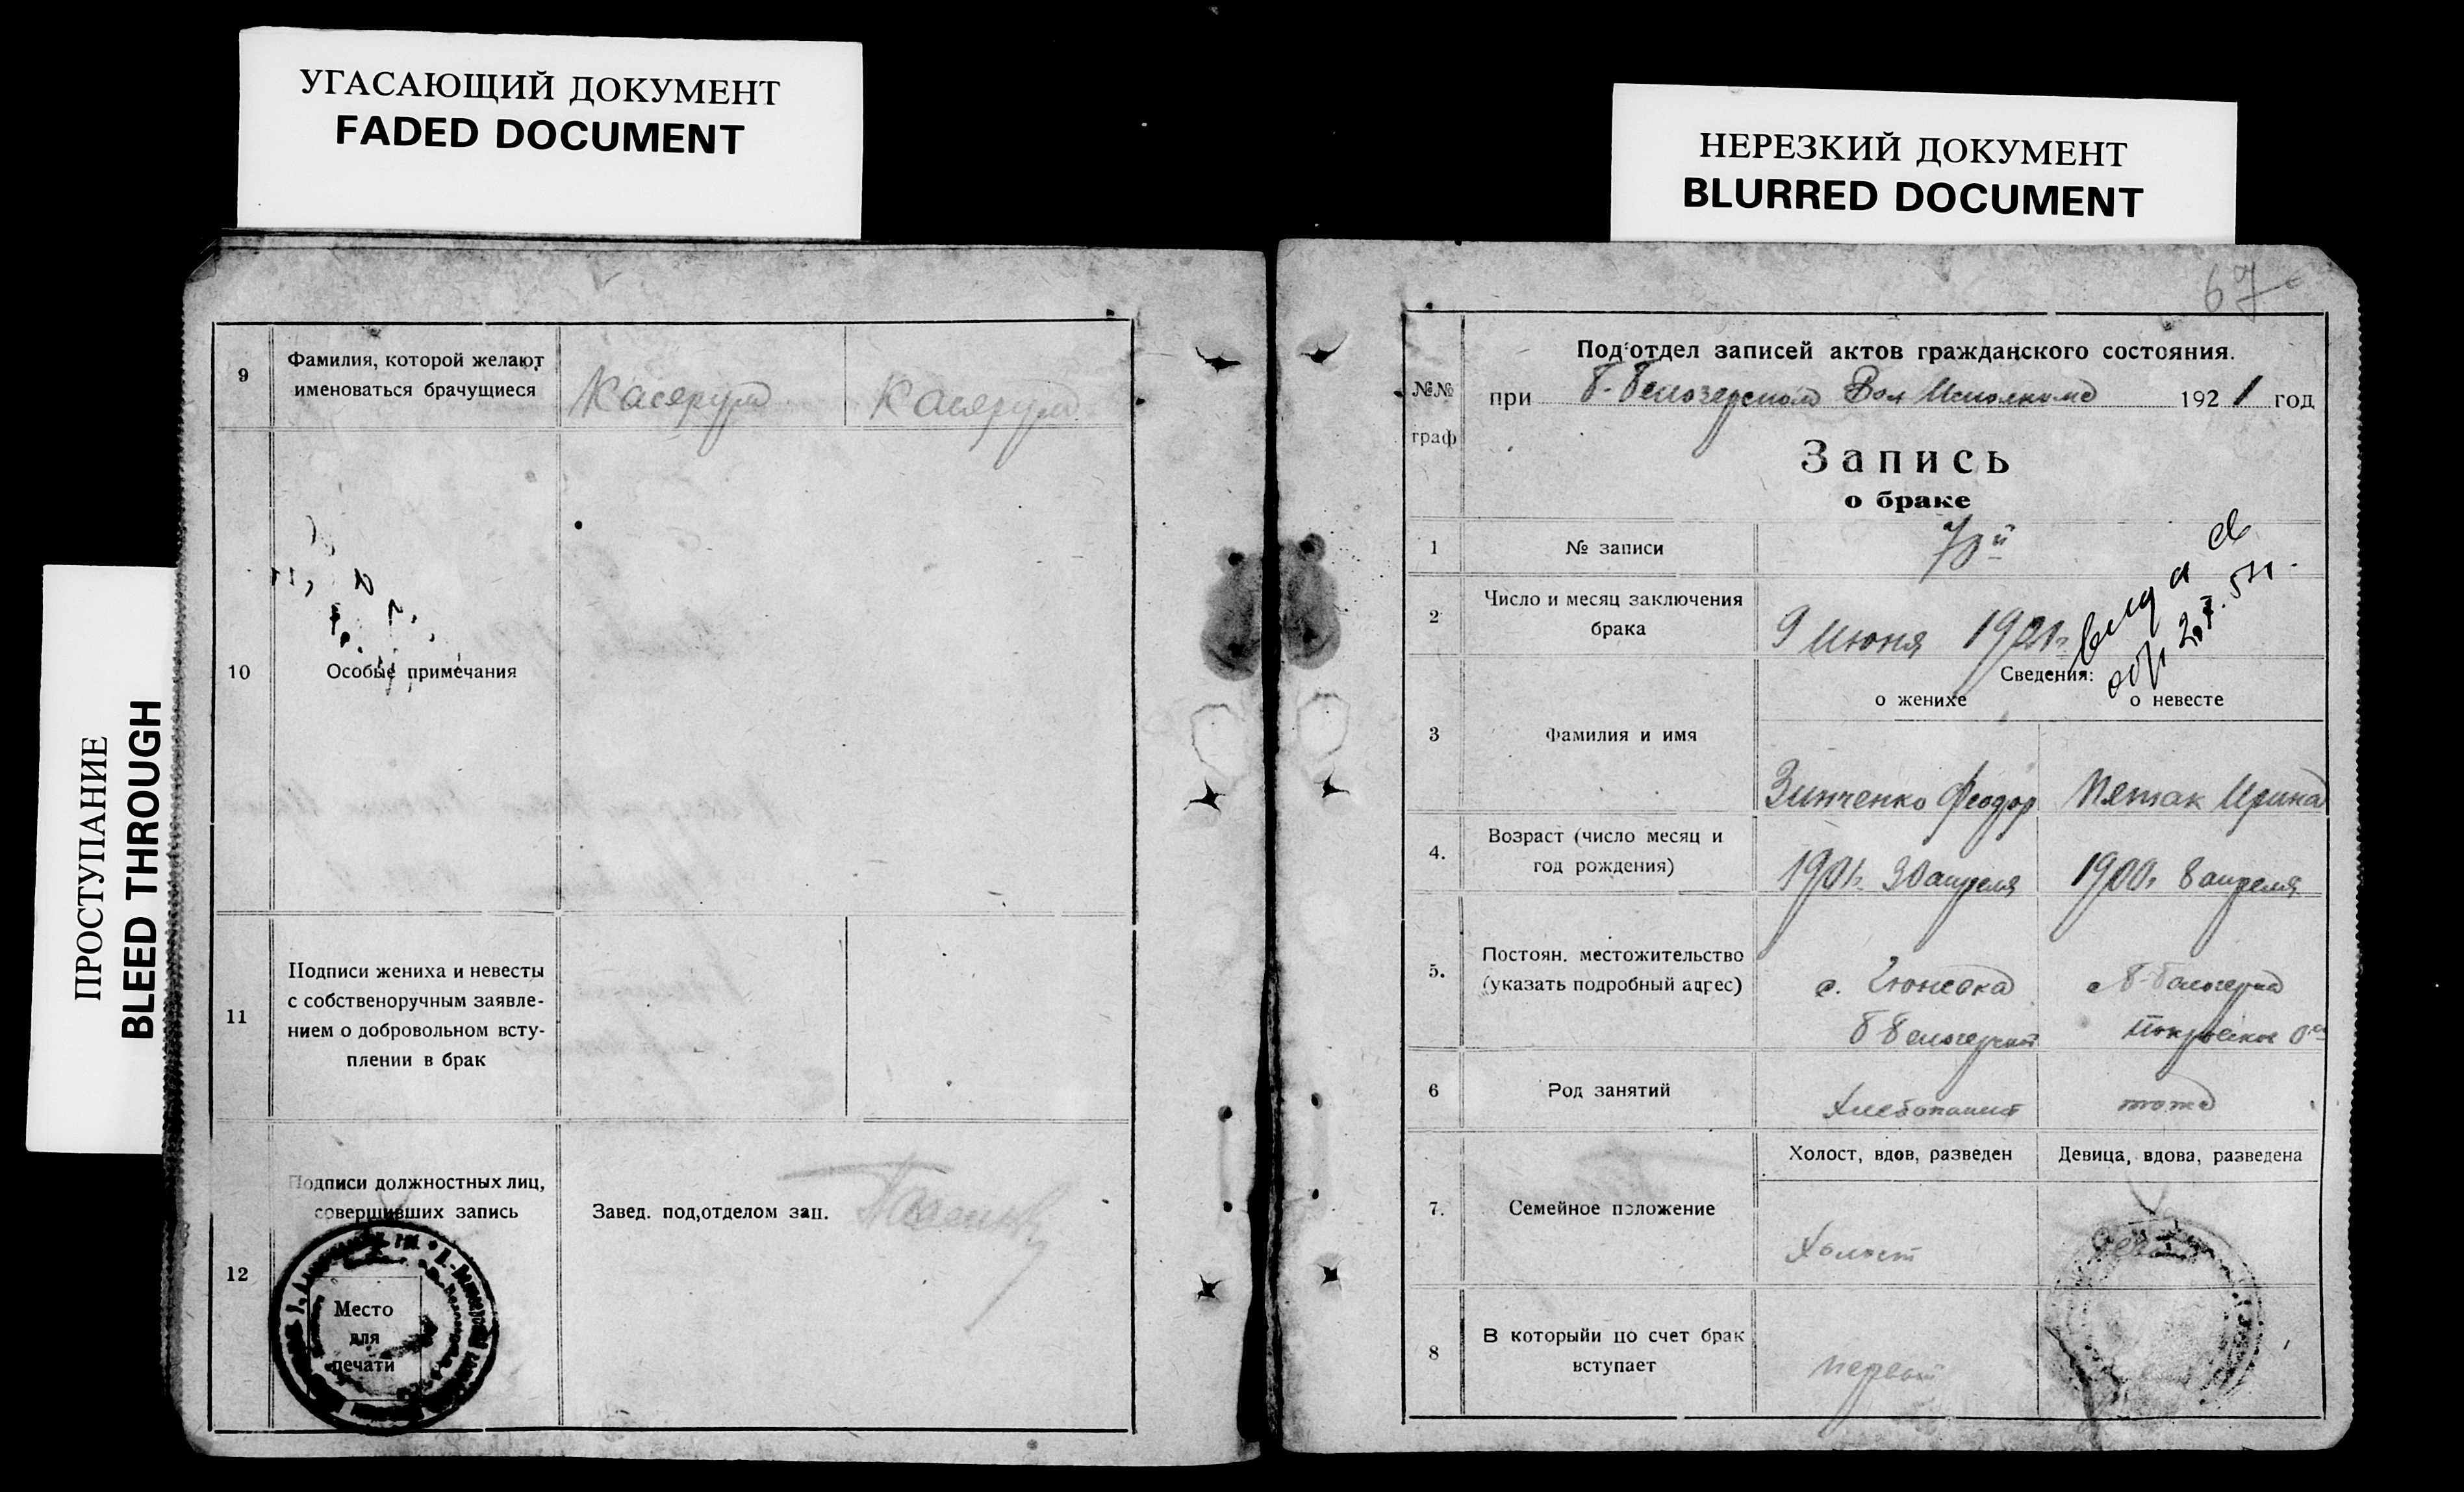 УГАСАЮЩИЙ ДОКУМЕНТ
FADED DOCUMENT
НЕРЕЗКИЙ ДОКУМЕНТ
BLURRED DOCUMENT
ПРОСТУПАНИЕ
BLEED THROUGH
9
Фамилия, которой желают
именоваться брачущиеся
10
Особые примечания
11
Подписи жениха и невесты
с собственоручным заявле-
нием о добровольном всту-
плении в брак
12
Подписи должностных лиц,
совершивших запись
Завед. под,отделом зап.
Место
для
печати
67
№№
граф
Под'отдел записей актов гражданского состояния.
при Б-Белозерском Вол Исполкоме 1921 год
Запись
о браке
1
№ записи
2
Число и месяц заключения
брака
9 Июня 1921г
Сведения:
о женихе
о невесте
3
Фамилия и имя
Зинченко Феодор
Пятак Ирина
4.
Возраст (число месяц и
год рождения)
1901г. 30 апреля
1900г 8 апреля
5.
Постоян. местожительство
(указать подробный адрес)
6
Род занятий
Хлебопашец
тоже
7.
Семейное положение
Холост, вдов, разведен
Девица, вдова, разведена
Холост
8
В которыйи по счет брак
вступает
первый